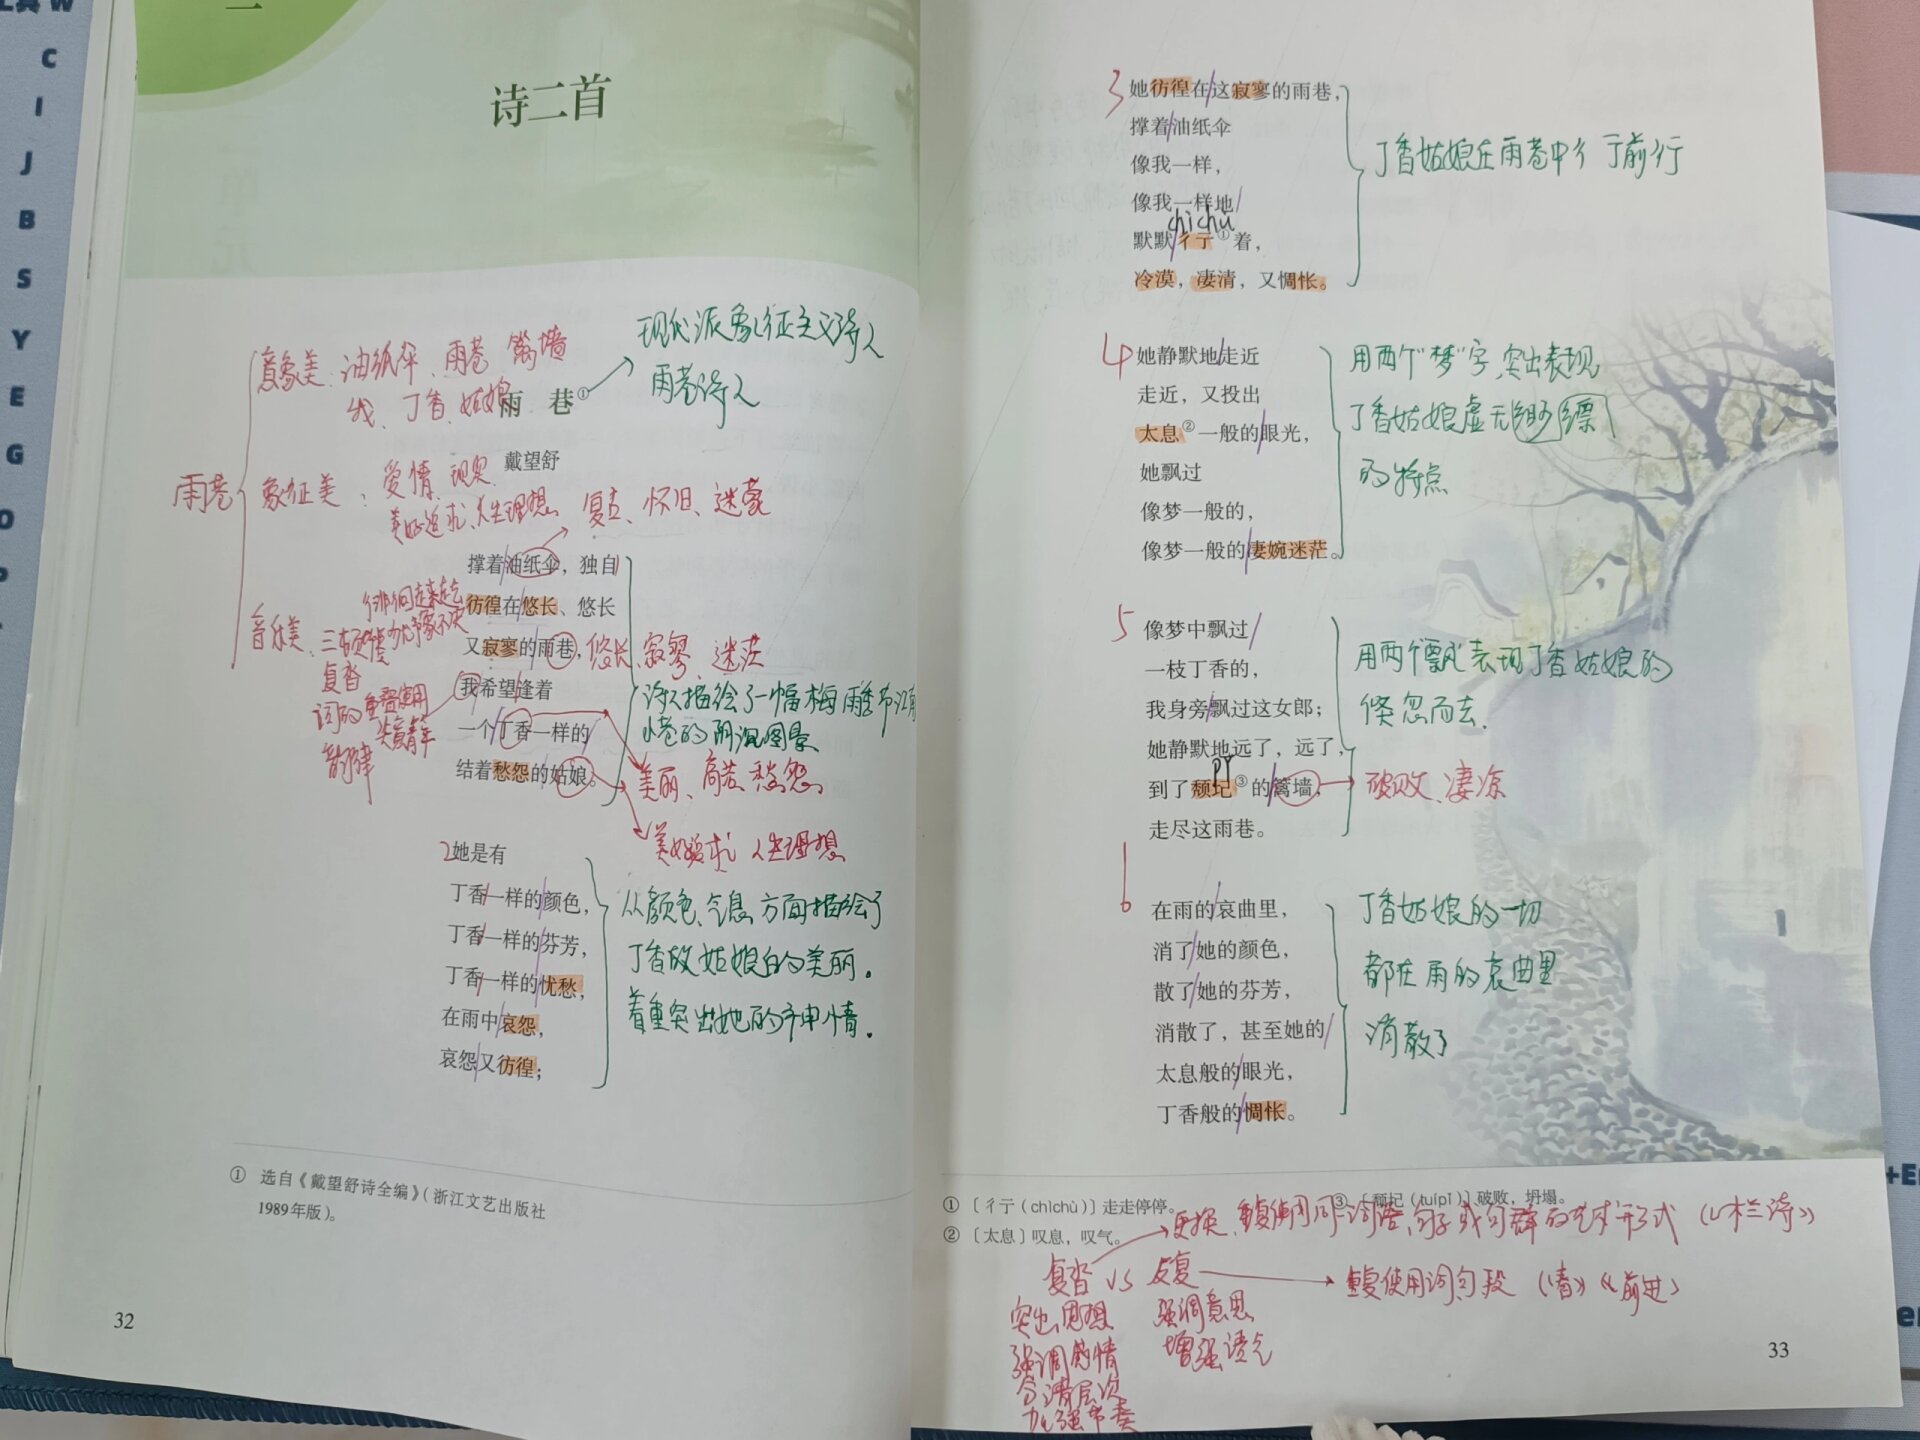 诗二首
现代派象征主义诗人
雨巷诗人
意象美：油纸伞、雨巷 篱墙
我、丁香、姑娘
雨 巷①
戴望舒
雨巷
象征美：爱情、现实
美好追求、人生理想
复古、怀旧、迷蒙
撑着油纸伞，独自
彷徨在悠长、悠长
又寂寥的雨巷，
悠长、寂寥、迷茫
我希望逢着
一个丁香一样的
结着愁怨的姑娘。
音乐美、三顿
复沓
词的重叠使用
韵律
徘徊走来走去
犹豫不决
诗人描绘了一幅梅雨季节江南
小巷的阴沉图景
美丽、高洁、愁怨
美好追求 人生理想
2她是有
丁香一样的颜色，
丁香一样的芬芳，
丁香一样的忧愁，
在雨中哀怨，
哀怨又彷徨；
从颜色、气息方面描绘了
丁香故姑娘的美丽。
着重突出她的神情。
① 选自《戴望舒诗全编》（浙江文艺出版社
1989年版）。
32
3 她彷徨在这寂寥的雨巷，
撑着油纸伞
像我一样，
像我一样地
chì chù
默默彳亍①着，
冷漠，凄清，又惆怅。
丁香姑娘在雨巷中彳亍前行
4 她静默地走近
走近，又投出
太息②一般的眼光，
她飘过
像梦一般的，
像梦一般的凄婉迷茫。
用两个“梦”字，突出表现
丁香姑娘虚无缈缥
的特点
5 像梦中飘过
一枝丁香的，
我身旁飘过这女郎；
她静默地远了，远了，
pǐ
到了颓圮③的篱墙，
走尽这雨巷。
用两个“飘”表现丁香姑娘的
倏忽而去.
破败、凄凉
6
在雨的哀曲里，
消了她的颜色，
散了她的芬芳，
消散了，甚至她的
太息般的眼光，
丁香般的惆怅。
丁香姑娘的一切
都在雨的哀曲里
消散了
① 〔彳亍（chìchù）〕走走停停。
③ 〔颓圮（tuípǐ）〕破败，坍塌。
② 〔太息〕叹息，叹气。
更换、重复使用同一词语、句子或句群的艺术形式
复沓 VS 反复
重复使用词句段 《春》《前进》
突出思想
强调感情
分清层次
加强节奏
强调意思
增强语气
33
W
C
I
J
B
S
Y
E
G
O
P